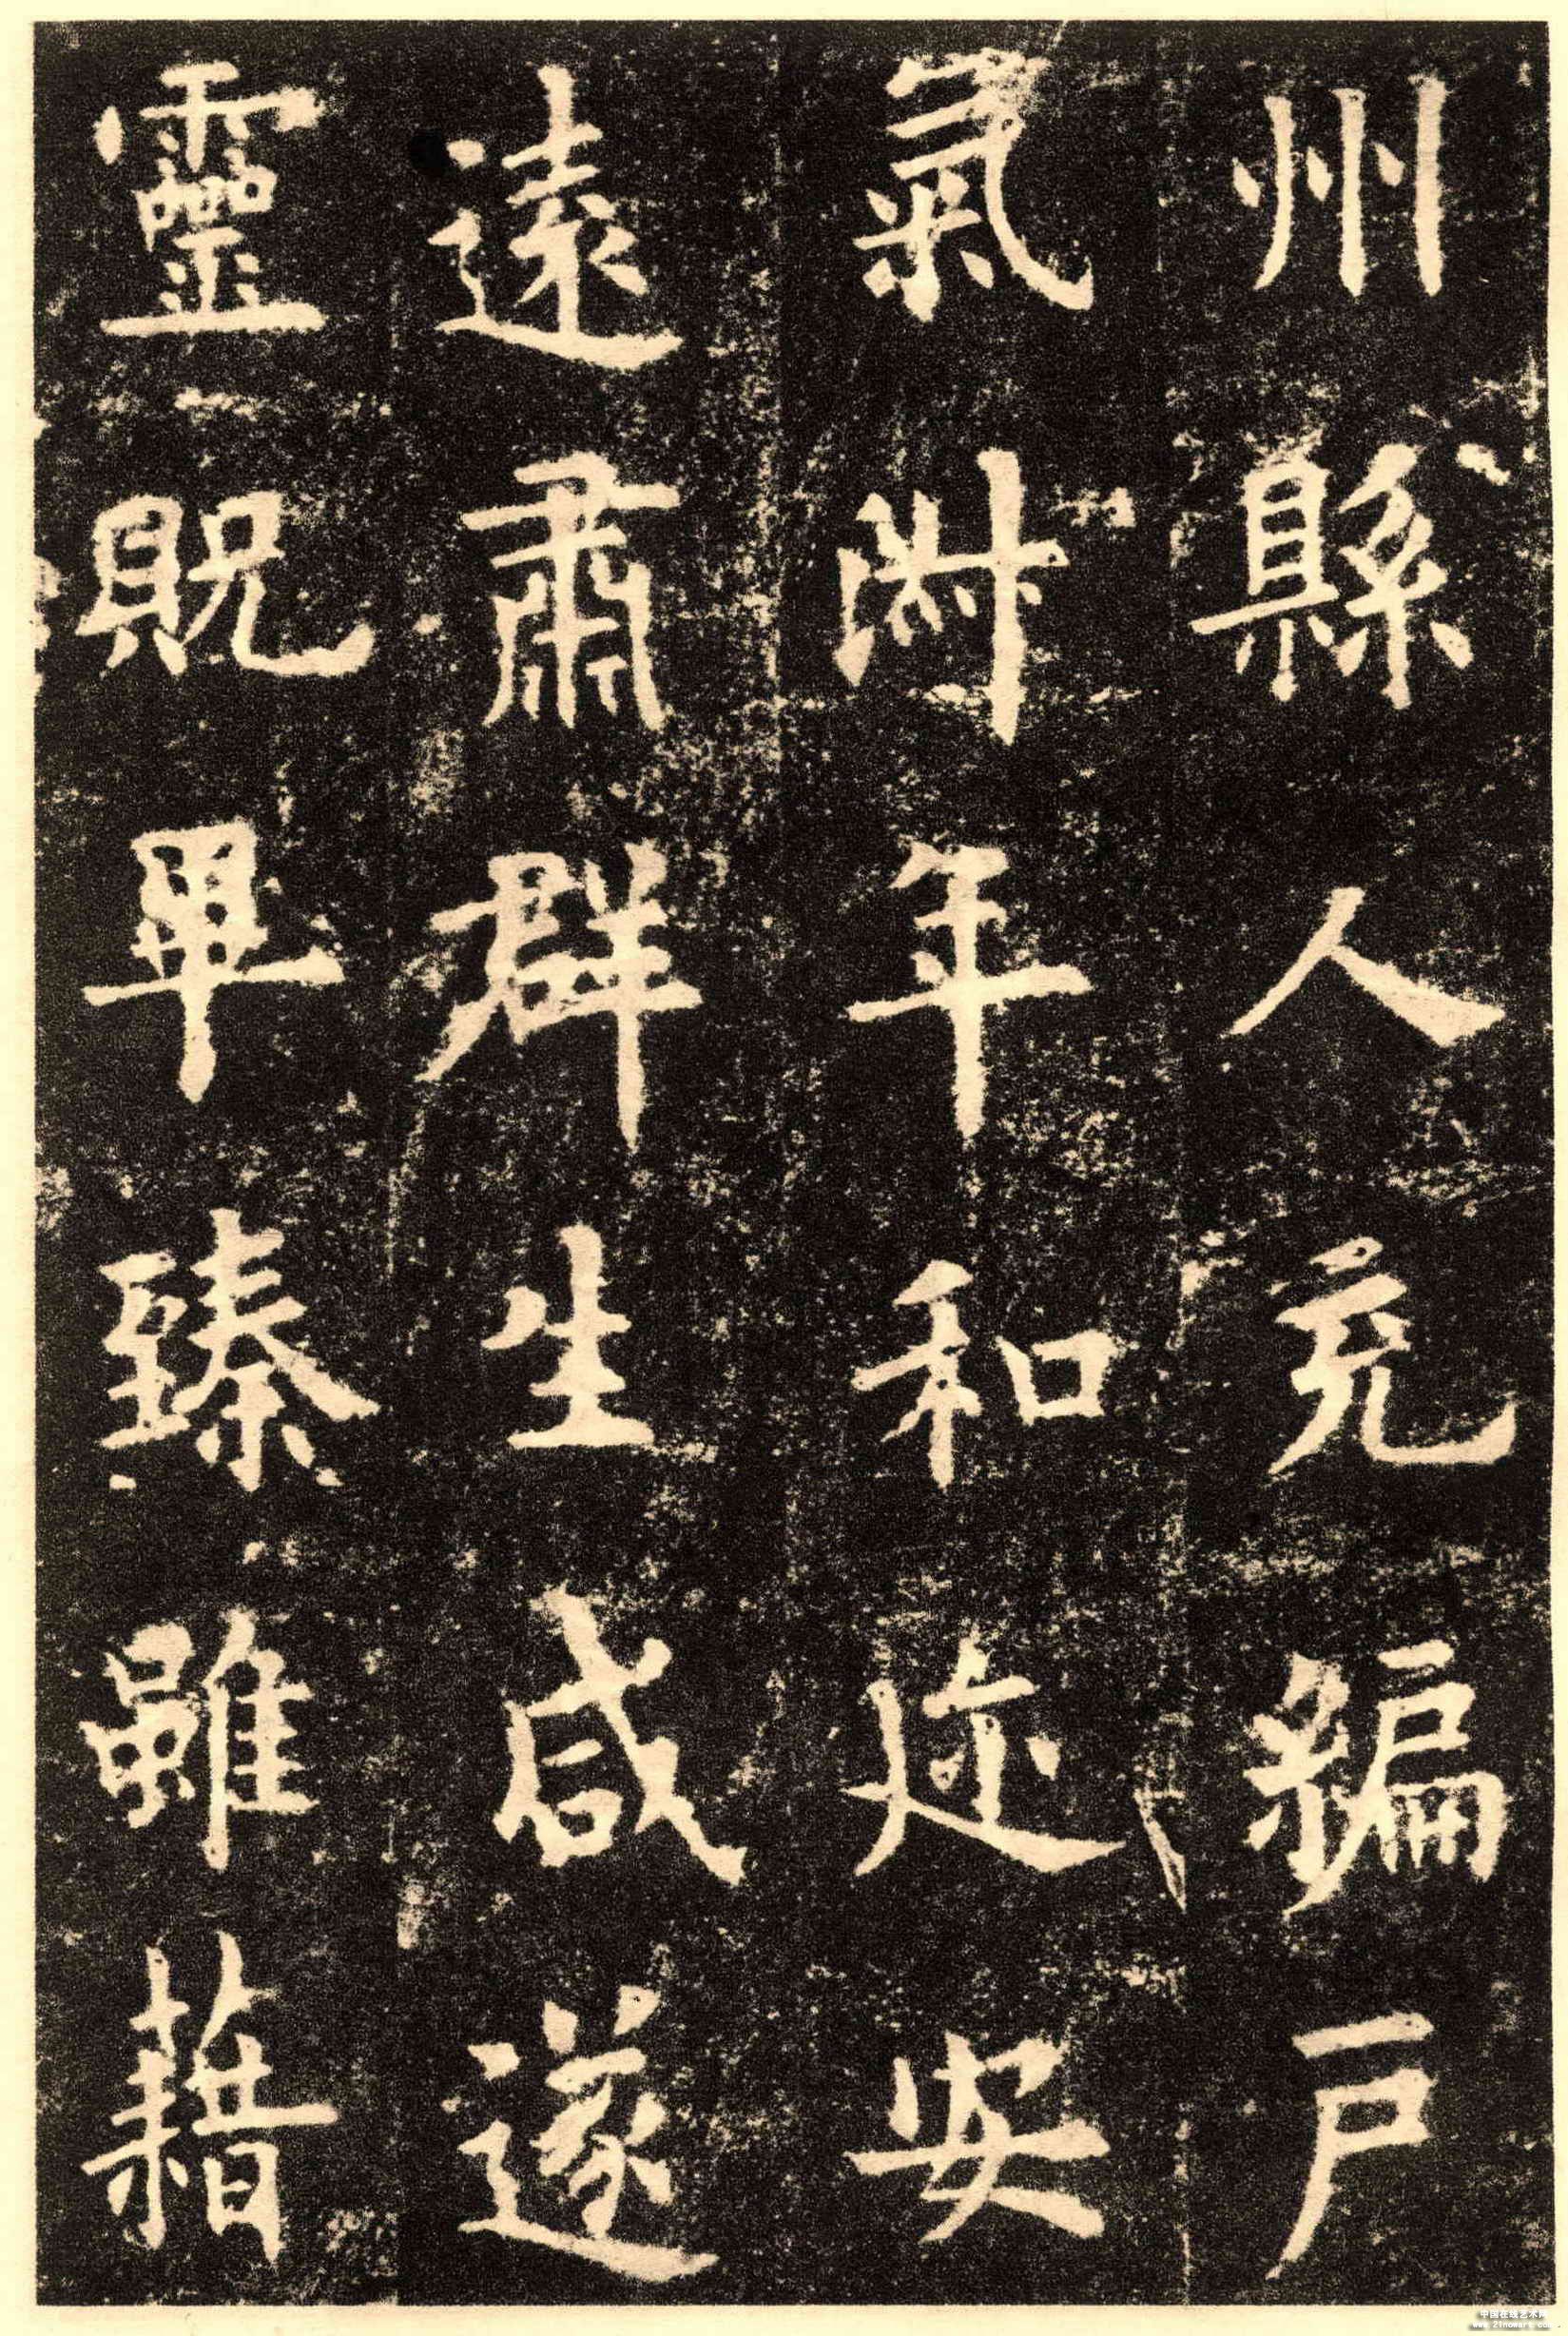 州縣人充編戶
氣淑年和迩安
遠肅群生咸遂
靈貺畢臻雖藉
中国在线艺术网
www.21nowart.com